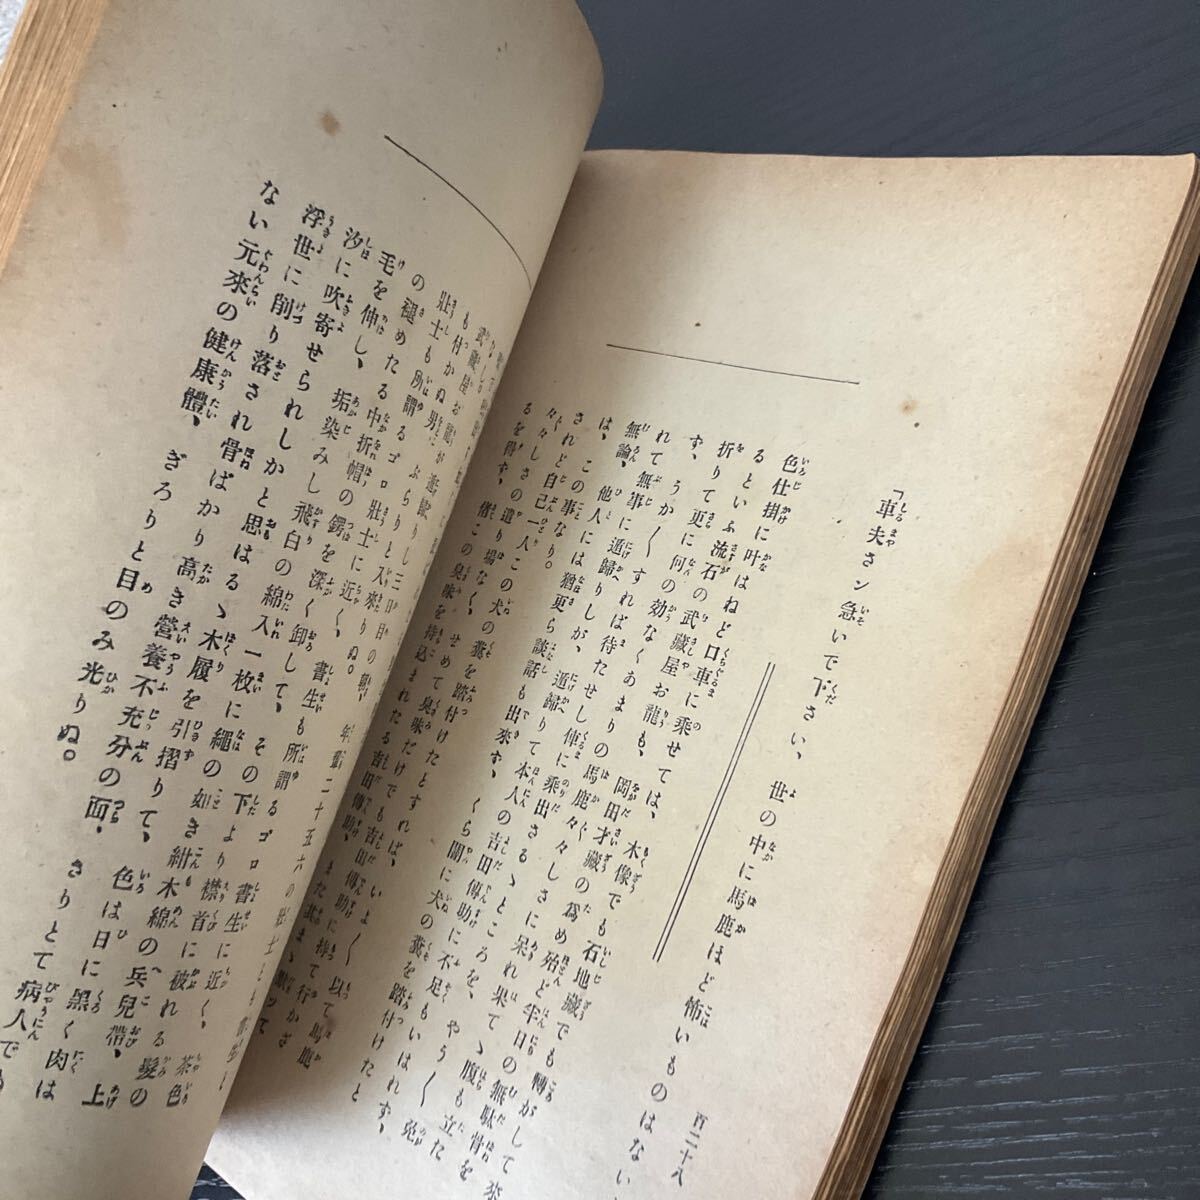 百二十八
「車夫さン急いで下さい、世の中に馬鹿ほど怖いものはない
色仕掛に叶はねど口車に乗せては、木像でも石地藏でも轉がして來
るといふ流石の武藏屋お龍も、岡田才藏の為め殆ど半日の無駄骨を
折りて更に何の効なくあまりの馬鹿々々しさに呆れ果てゝ腹も立た
ず、うか〱すれば待たせし俥に乘出さるゝところを、やう〱免
れて無事に遁歸りしが、遁歸りて本人の吉田傳助に不足もいはれず、
無論、他人には猶更ら談話も出來ず、くら闇に犬の糞を踏付けたと
は、この事なり。
されど自己一人この犬の糞を踏付けたとすれば、いよ〱以て馬鹿
々々しさの遣り場なく、せめて吉田傳助に
るを得ず、偖この臭味を持込まれたる吉田傳助、また其まゝ
臭味だけでも
年輩二十五六の壯士とも書生と
も付かぬ男が
壯士も所謂るゴロ壯士に近く、書生も所謂るゴロ書生に近く、茶色
の褪めたる中折帽の鍔を深く卸して、その下より襟首に被れる髮の
毛を伸し、垢染みし飛白の綿入一枚に繩の如き紺木綿の兵兒帶、上
汐に吹寄せられしかと思はるゝ木履を引摺りて、色は日に黑く肉は
浮世に削り落され骨ばかり高き營養不充分の面、さりとて病人で
ない元來の健康體、ぎろりと目のみ光りぬ。